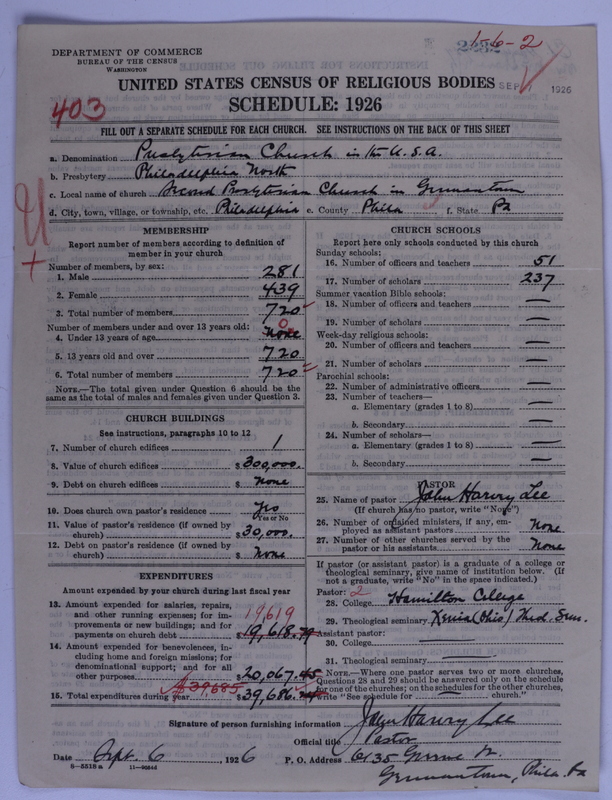 DEPARTMENT OF COMMERCE
BUREAU OF THE CENSUS
WASHINGTON
156-2
UNITED STATES CENSUS OF RELIGIOUS BODIES
SEP 1926
403
SCHEDULE: 1926
FILL OUT A SEPARATE SCHEDULE FOR EACH CHURCH. SEE INSTRUCTIONS ON THE BACK OF THIS SHEET
a. Denomination Presbyterian Church in the U.S.A.
b. Presbytery Philadelphia North
c. Local name of church Second Presbyterian Church in Germantown
d. City, town, village, or township, etc. Philadelphia e. County Phila f. State Pa
MEMBERSHIP
Report number of members according to definition of
member in your church
Number of members, by sex:
1. Male 281
2. Female 439
3. Total number of members 720
Number of members under and over 13 years old:
4. Under 13 years of age None 0
5. 13 years old and over 720
6. Total number of members 720
NOTE.—The total given under Question 6 should be
same as the total of males and females given under Question 3.
CHURCH BUILDINGS
See instructions, paragraphs 10 to 12
7. Number of church edifices 1
8. Value of church edifices $300,000.
9. Debt on church edifices $ None
10. Does church own pastor's residence Yes
Yes or No
11. Value of pastor's residence (if owned by
church) $30,000.
12. Debt on pastor's residence (if owned by
church) $ None
EXPENDITURES
Amount expended by your church during last fiscal year
13. Amount expended for salaries, repairs,
and other running expenses; for im-
provements or new buildings; and for
payments on church debt $19,618.79
19619
14. Amount expended for benevolences, in-
cluding home and foreign missions; for
denominational support; and for all
other purposes 20,067.45
15. Total expenditures during year $39,686.
$39685
CHURCH SCHOOLS
Report here only schools conducted by this church
Sunday schools:
16. Number of officers and teachers 51
17. Number of scholars 237
Summer vacation Bible schools:
18. Number of officers and teachers —
19. Number of scholars —
Week-day religious schools:
20. Number of officers and teachers —
21. Number of scholars —
Parochial schools:
22. Number of administrative officers —
23. Number of teachers—
a. Elementary (grades 1 to 8) —
b. Secondary —
24. Number of scholars—
a. Elementary (grades 1 to 8) —
b. Secondary —
PASTOR
25. Name of pastor John Harvey Lee
(If church has no pastor, write "None")
26. Number of ordained ministers, if any, em-
ployed as assistant pastors None
27. Number of other churches served by the
pastor or his assistants None
If pastor (or assistant pastor) is a graduate of a college or
theological seminary, give name of institution below. (If
not a graduate, write "No" in the space indicated.)
Pastor: 2
28. College Hamilton College
29. Theological seminary Xenia (Ohio) Theol. Sem.
Assistant pastor:
30. College
31. Theological seminary
NOTE.—Where one pastor serves two or more churches,
Questions 28 and 29 should be answered only on the schedule
for one of the churches; on the schedules for the other churches,
write "See schedule for — church."
Signature of person furnishing information John Harvey Lee
Official title Pastor
Date Sept. 6, 1926 P. O. Address 6135 Greene St.
Germantown, Phila. Pa
8-5518a 11-9944